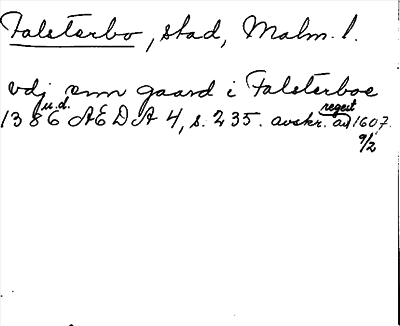 Falsterbo, stad, Malm. l.
vdj enn gaard i Falsterboe
1386 u.d. AEDA 4, s. 235. avskr. av regest 1607.
9/2